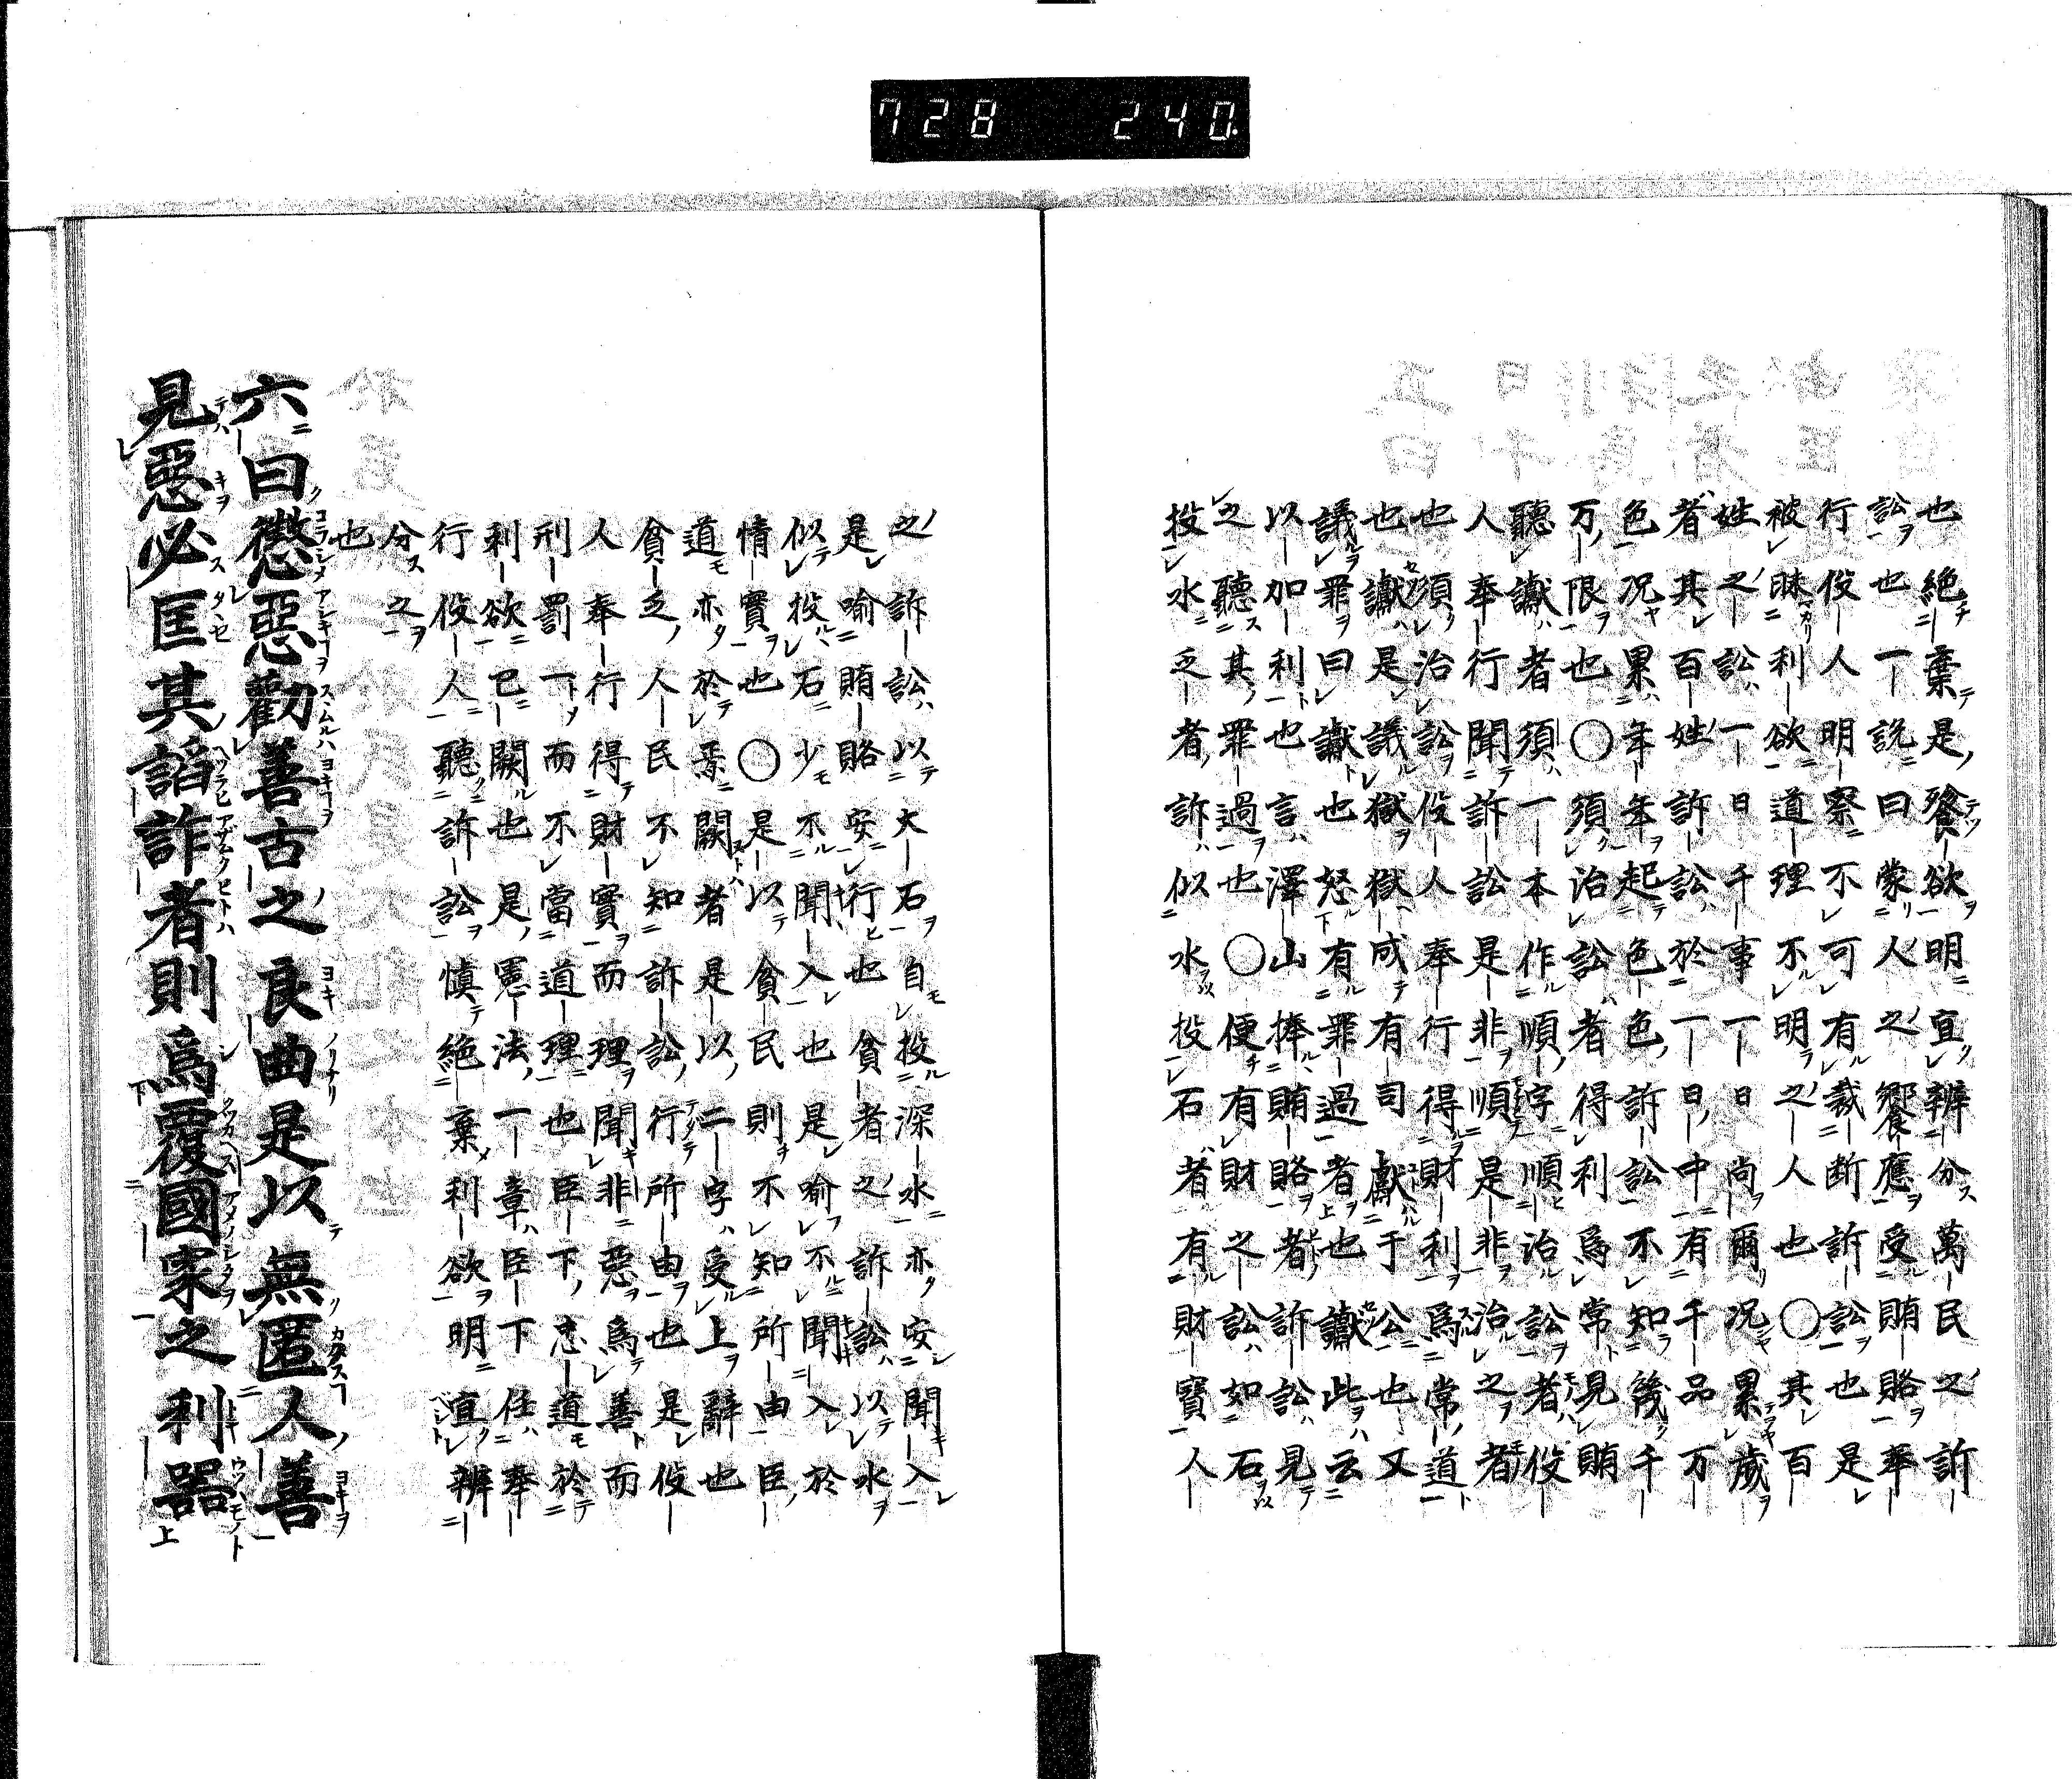 728 240.
也絶棄是餮欲明宜辨分萬民之訴
訟也一說曰蒙人之饗應受賄賂奉
行役人明察不可有裁断訴訟也是
被昧利欲道理不明之人也〇其百
姓之訟一日千事一日尚爾況累歲
者其百姓訴訟於一日中有千品万
色况累年年起色色訴訟不知幾千
万限也〇須治訟者得利爲常見賄
聽讞者須一本作順字順治訟者役
人奉行聞訴訟是非順是非治之者
也須治訟役人奉行得財利爲常道
也讞是議獄獄成有司獻于公也又
議罪曰讞也怒有罪過者也讞此云
以加利也言澤山捧賄賂者訴訟見
之聽其罪過也〇便有財之訟如石
投水乏者訴似水投石者有財寶人
之訴訟以大石自投深水亦安聞入
是喻賄賂安行也貧者之訴訟以水
似投石少不聞入也是喻不聞入於
情實也〇是以貧民則不知所由臣
道亦於焉闕者是以二字受上辭也
貧乏人民不知訴訟行所由也是役
人奉行得財寶而理聞非惡爲善而
刑罰一而不當道理也臣下忠道於
利欲已闕也是憲法一章臣下任奉
行役人聽訴訟慎絶棄利欲明宜辨
分之
也
六曰懲惡勸善古之良曲是以無匿人善
見惡必匡其諂詐者則爲覆國家之利器